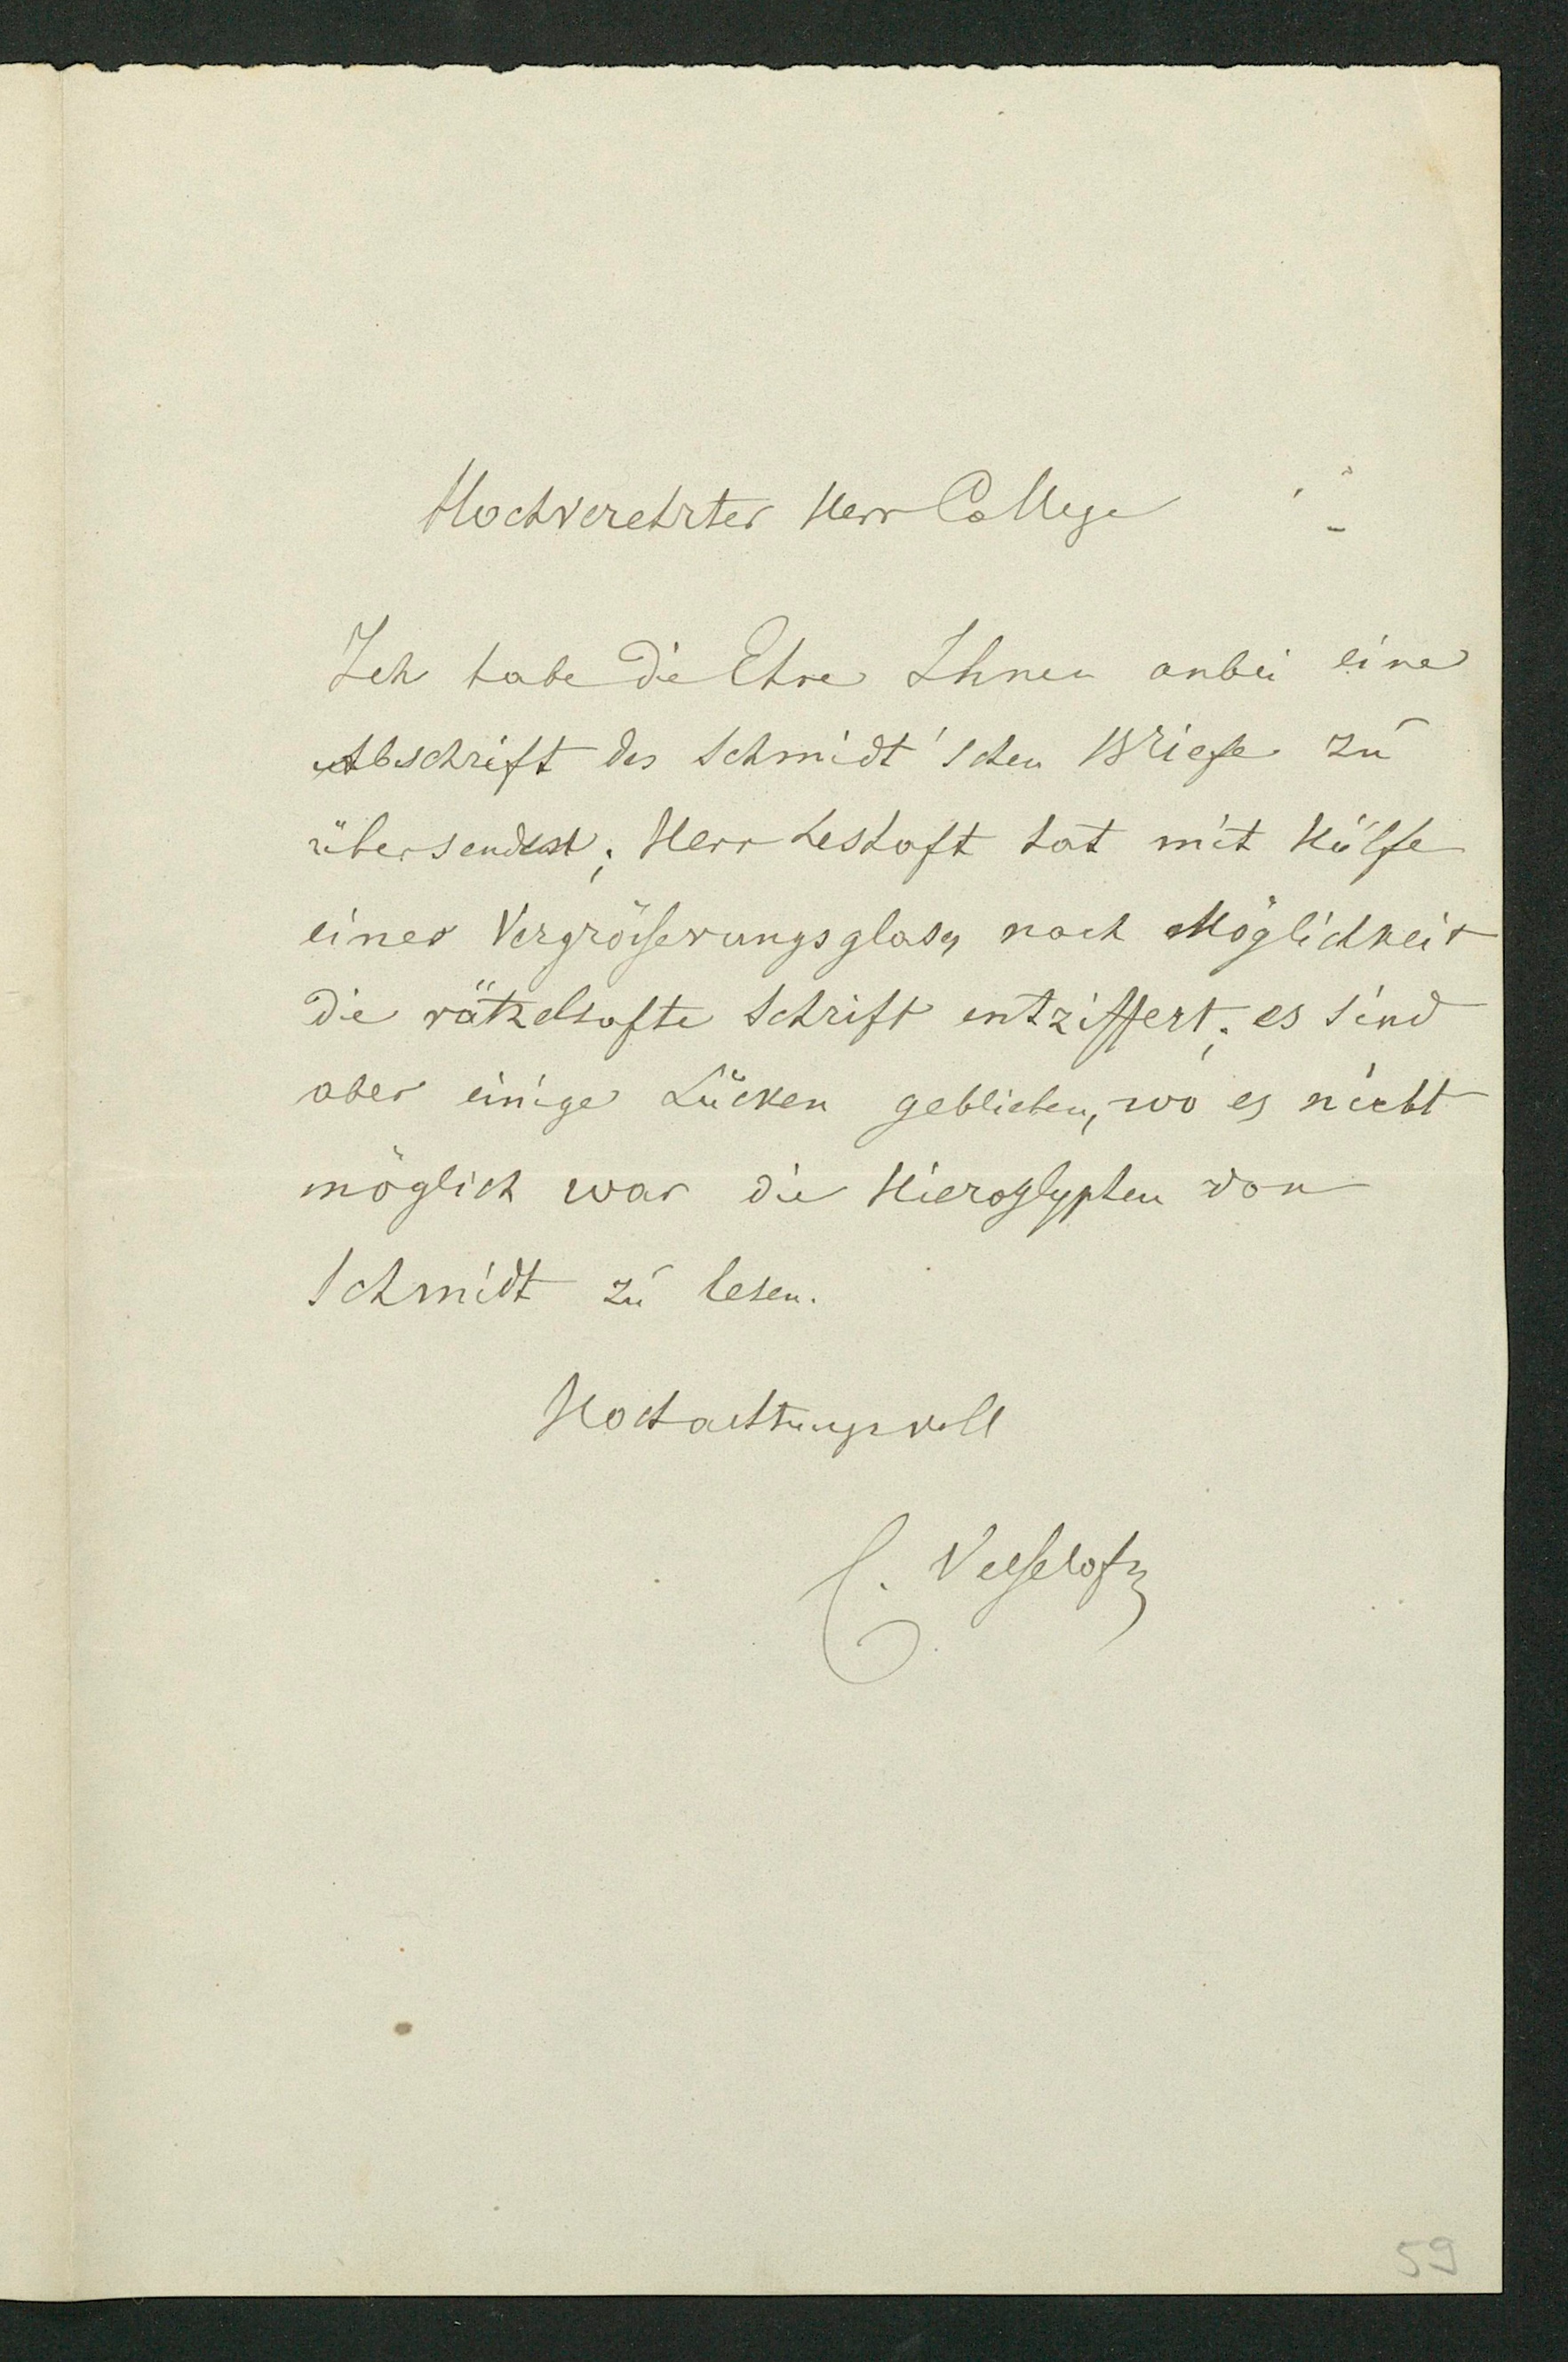 Hochverehrter Herr College
Ich habe die Ehre Ihnen anbei eine
Abschrift des Schmidt'schen Briefe zu
übersenden; Herr Leshaft hat mit Hülfe
eines Vergrößerungsglases nach Möglichkeit
die rätzelhafte Schrift entziffert; es sind
aber einige Lücken geblieben, wo es nicht
möglich war die Hieroglyphen von
Schmidt zu lesen.
Hochachtungsvoll
C. Vesselofz
59